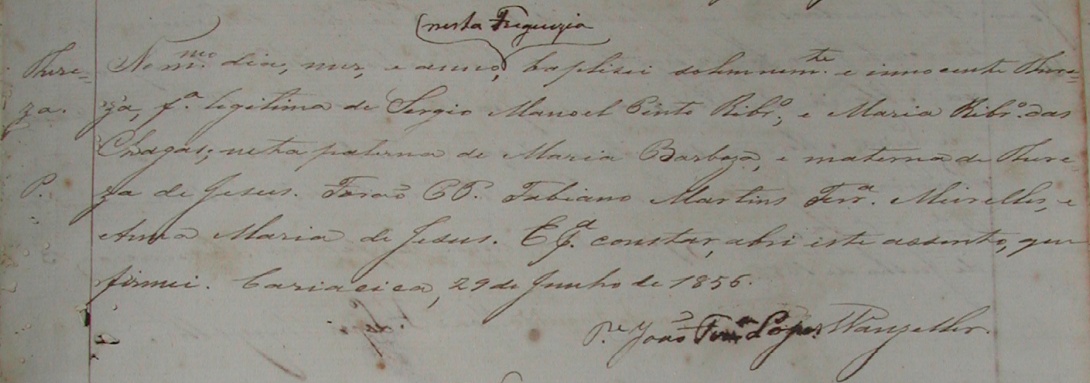 (nesta Freguezia
There= No mmo. dia, mez, e anno, baptizei solemnemte. e innocente There=
za. za, fa. legitima de Sergio Manoel Pinto Ribro., e Maria Ribro. das
Chagas; neta paterna de Maria Barboza, e materna de There
P. za de Jesus. Forão PP. Fabiano Martins Ferra. Meirelles, e
Anna Maria de Jesus. E pa. constar, abri este assento, que
firmei. Cariacica, 29 de Junho de 1856.
Pe. João Ferra. Lopes Wanzeller.